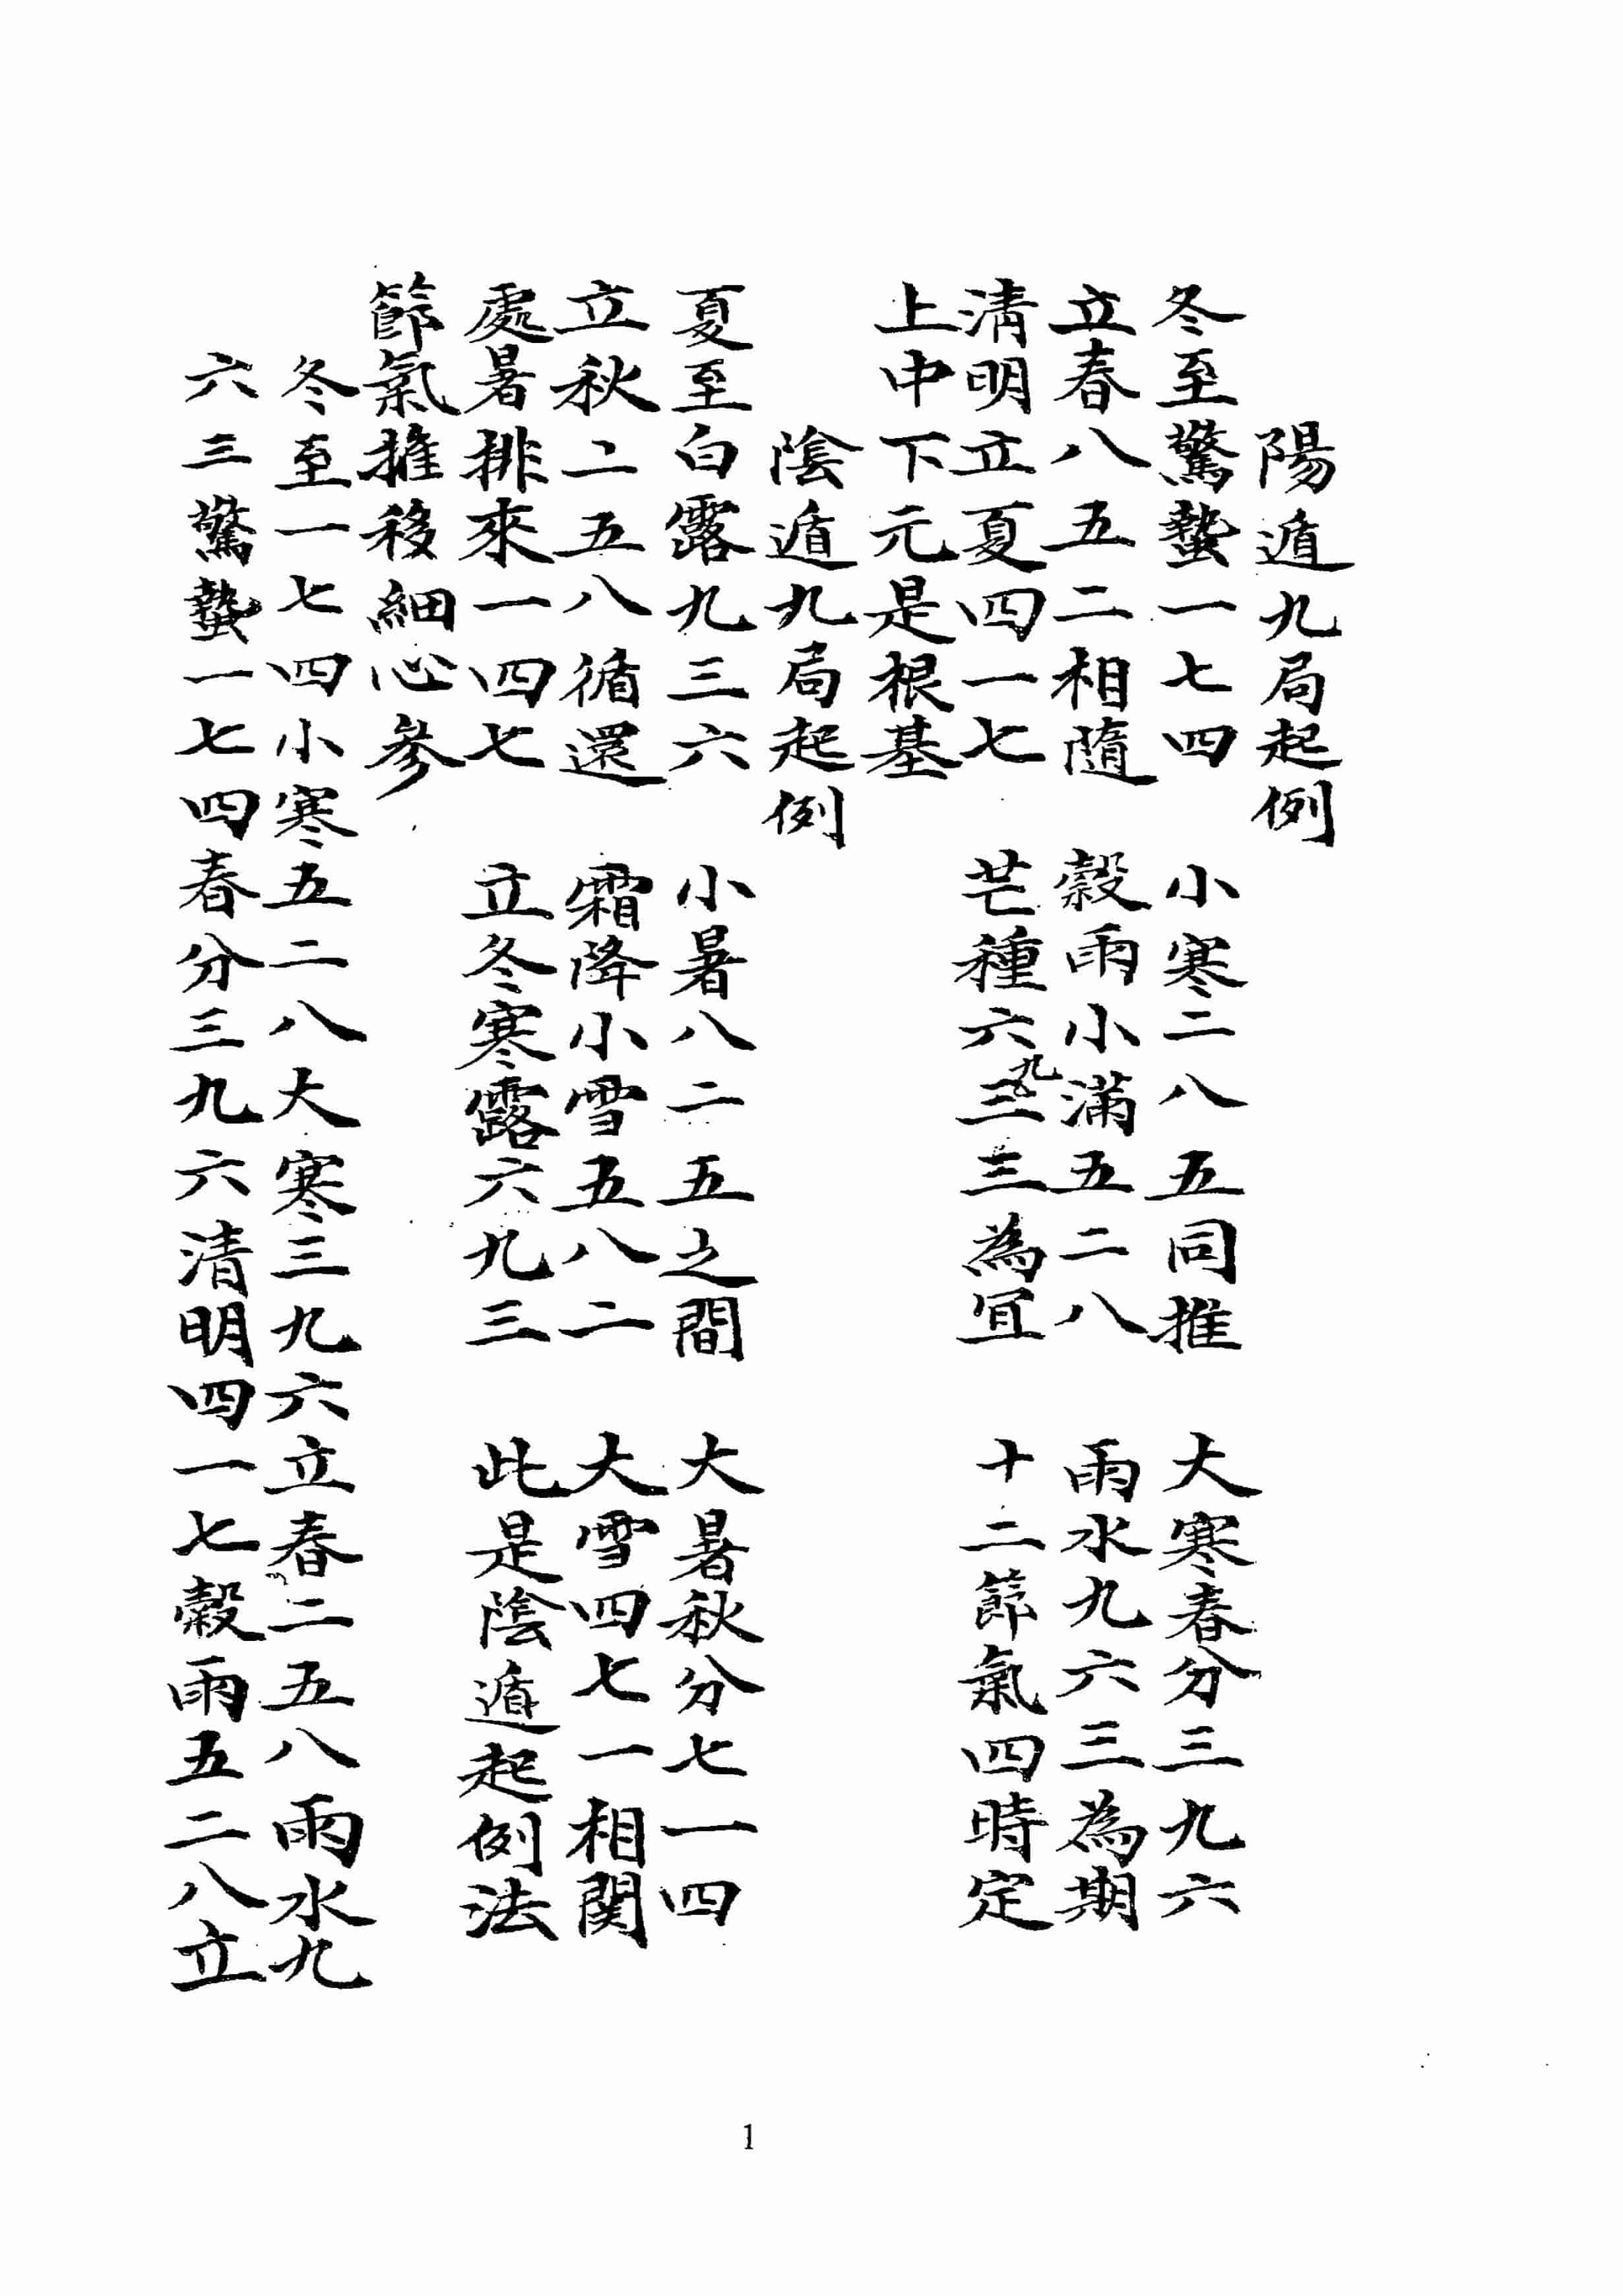 陽遁九局起例
冬至驚蟄一七四 小寒二八五同推 大寒春分三九六
立春八五二相隨 穀雨小滿五二八 雨水九六三為期
清明立夏四一七 芒種六三九三為宜 十二節氣四時定
上中下元是根基
陰遁九局起例
夏至白露九三六 小暑八二五之間 大暑秋分七一四
立秋二五八循還 霜降小雪五八二 大雪四七一相関
處暑排來一四七 立冬寒露六九三 此是陰遁起例法
節氣推移細心參
冬至一七四小寒五二八大寒三九六立春二五八雨水九
六三驚蟄一七四春分三九六清明四一七穀雨五二八立
1